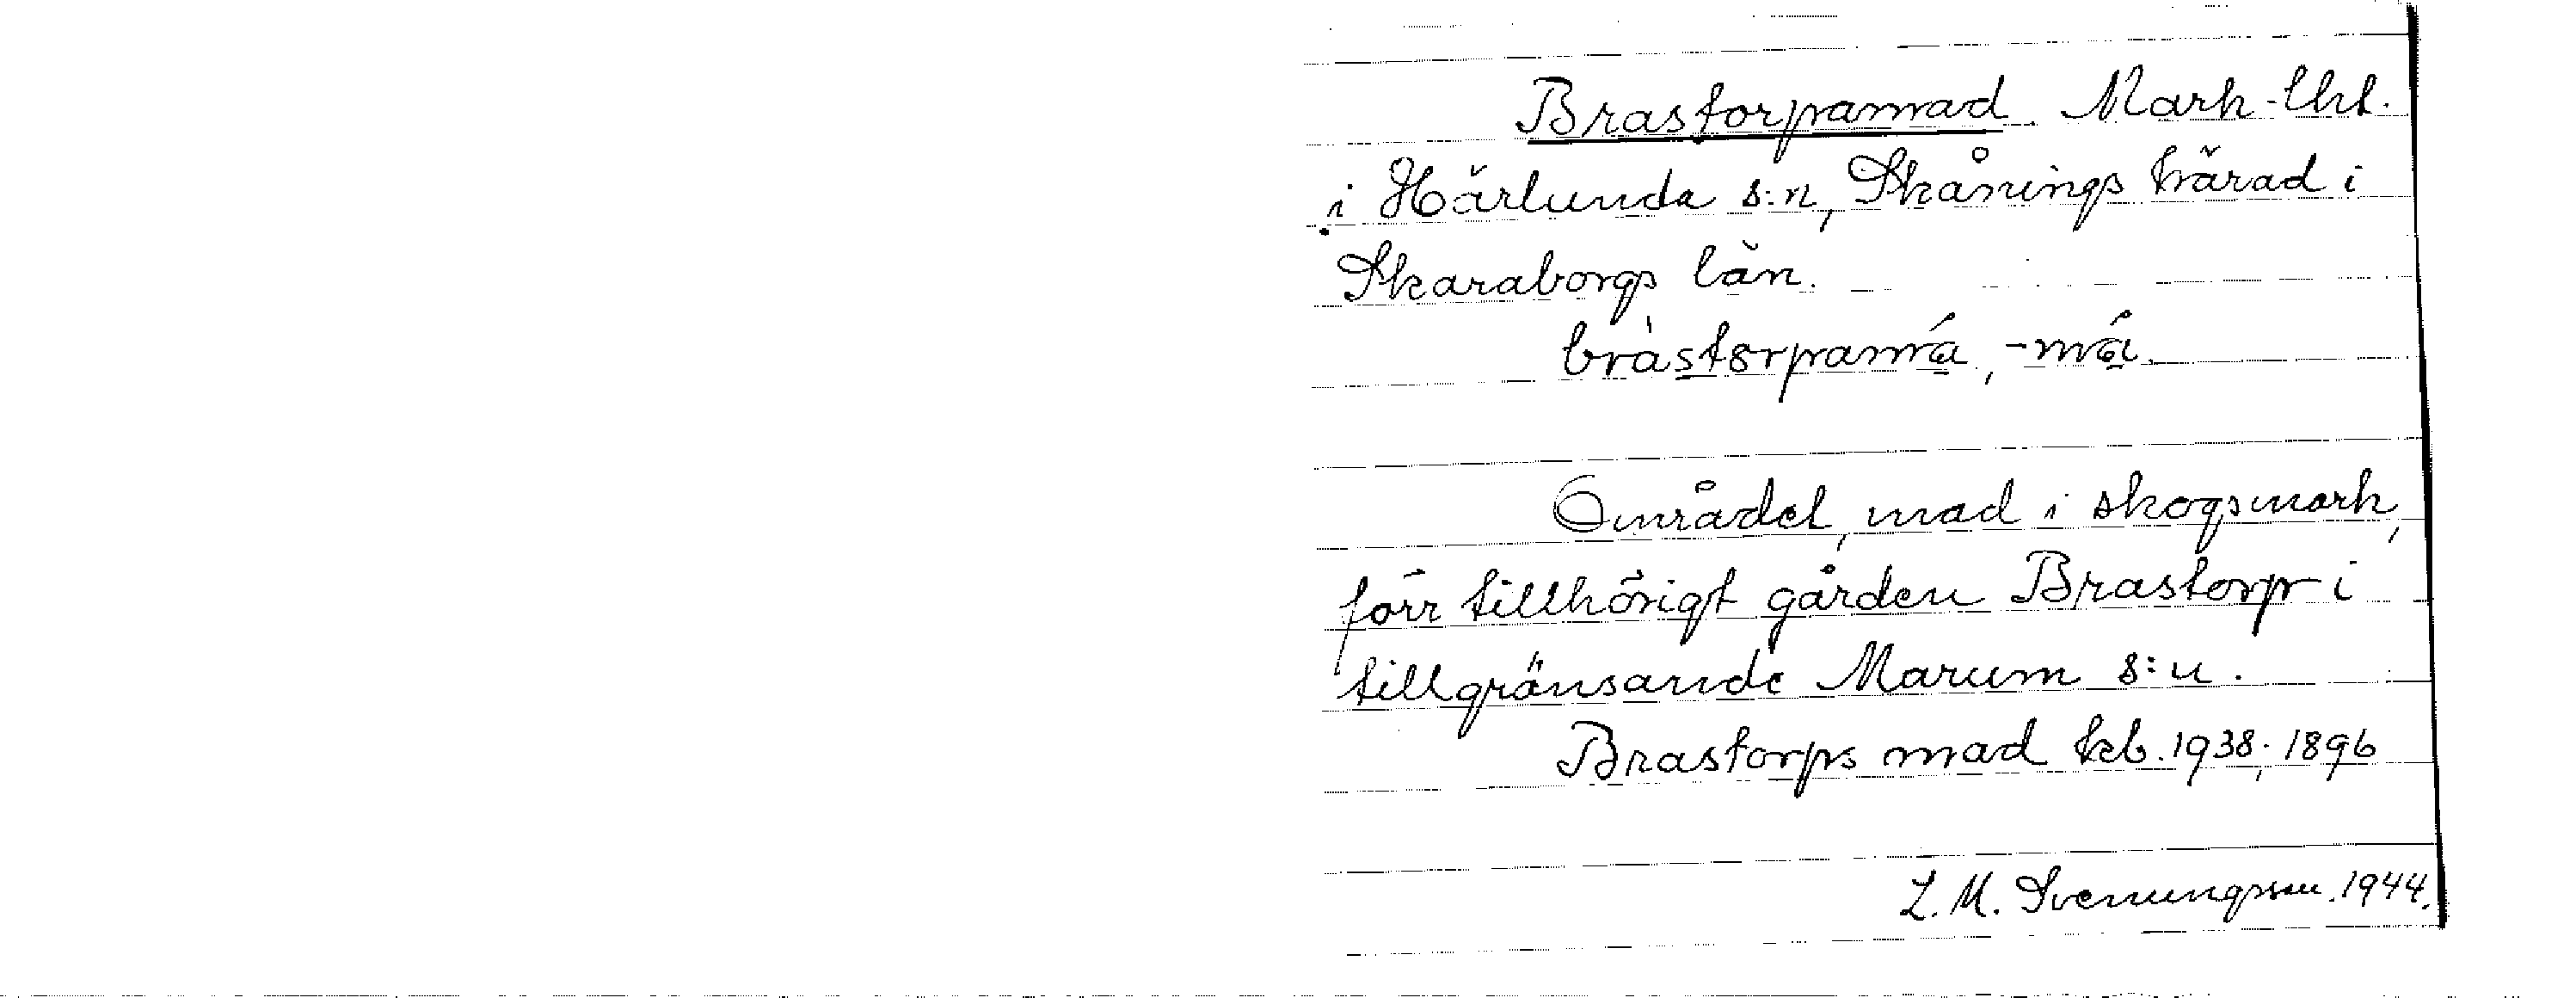 Brastorpamad. Mark-lht.
i Härlunda s:n, Skånings härad i
Skaraborgs län.
bràstɤrpamá, -má.
Området, mad i skogsmark,
förr tillhörigt gården Brastorp i
tillgränsande Marum s:n.
Brastorps mad kb. 1938; 1896
L. M. Svenungsson. 1944.